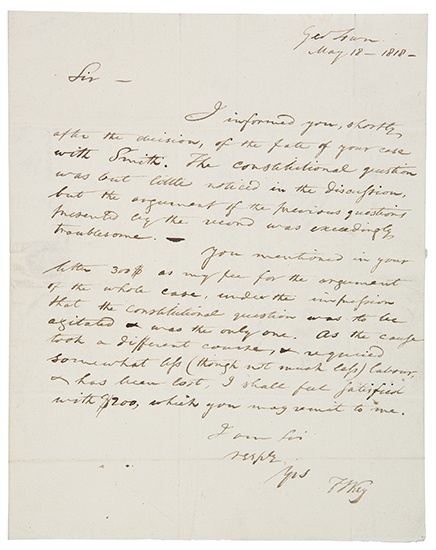 Geo Town
May 18 - 1818 -
Sir -
I informed you, shortly
after the decision, of the fate of your case
with Smith. The constitutional question
was but little noticed in the discussion,
but the argument of the previous questions
presented by the record was exceedingly
troublesome. -
You mentioned in your
letter 300$ as my fee for the argument
of the whole case, under the impression
that the constitutional question was to be
agitated & was the only one. As the cause
took a different course, & required
somewhat less (though not much less) labour,
& has been lost, I shall feel satisfied
with $200, which you may remit to me.
I am Sir
respy
Yrs
F S Key